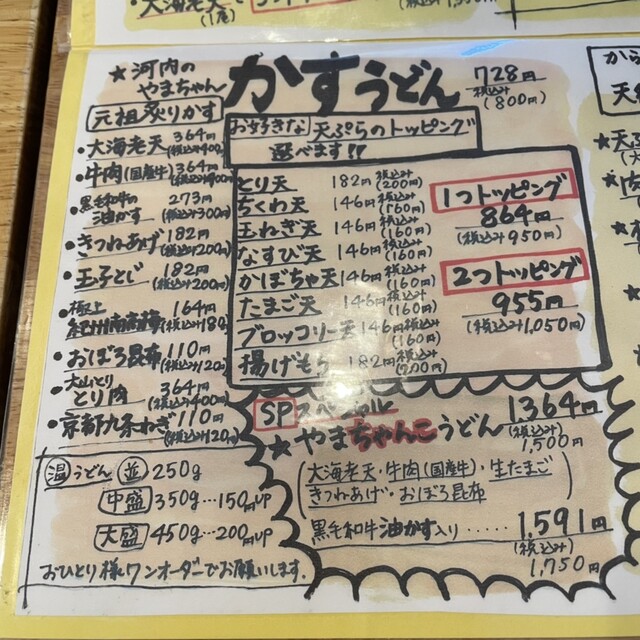 ・大海老天
(1尾)
★河内の
やまちゃん
元祖炙りかす
・大海老天 364円
(税込み400)
・牛肉(国産牛) 364円
(税込み400)
・黒毛和牛の
油かす 273円
(税込み300)
・きつねあげ 182円
(税込み200)
・玉子とじ 182円
(税込み200)
・極上
紀州南高梅 164円
(税込み180)
・おぼろ昆布 110円
(税込み120)
・大山どり
とり肉 364円
(税込み400)
・京都九条ねぎ 110円
(税込み120)
温うどん 並 250g
中盛 350g…150円UP
大盛 450g…200円UP
おひとり様ワンオーダーでお願いします.
かすうどん 728円
税込み
(800円)
お好きな天ぷらのトッピング
選べます!!
とり天 182円 税込み(200円)
ちくわ天 146円 税込み(160円)
玉ねぎ天 146円 税込み(160)
なすび天 146円 税込み(160)
かぼちゃ天 146円 税込み(160)
たまご天 146円 税込み(160)
ブロッコリー天 146円 税込み(160)
揚げもち 182円 税込み(200円)
1つトッピング
864円
(税込み950円)
2つトッピング
955円
(税込み1,050円)
SPスペシャル
★やまちゃんこうどん 1364円
(税込み)
1,500円
(大海老天・牛肉(国産牛)・生たまご
きつねあげ・おぼろ昆布)
黒毛和牛油かす入り……1,591円
(税込み)
1,750円
から
天
★天ぷ